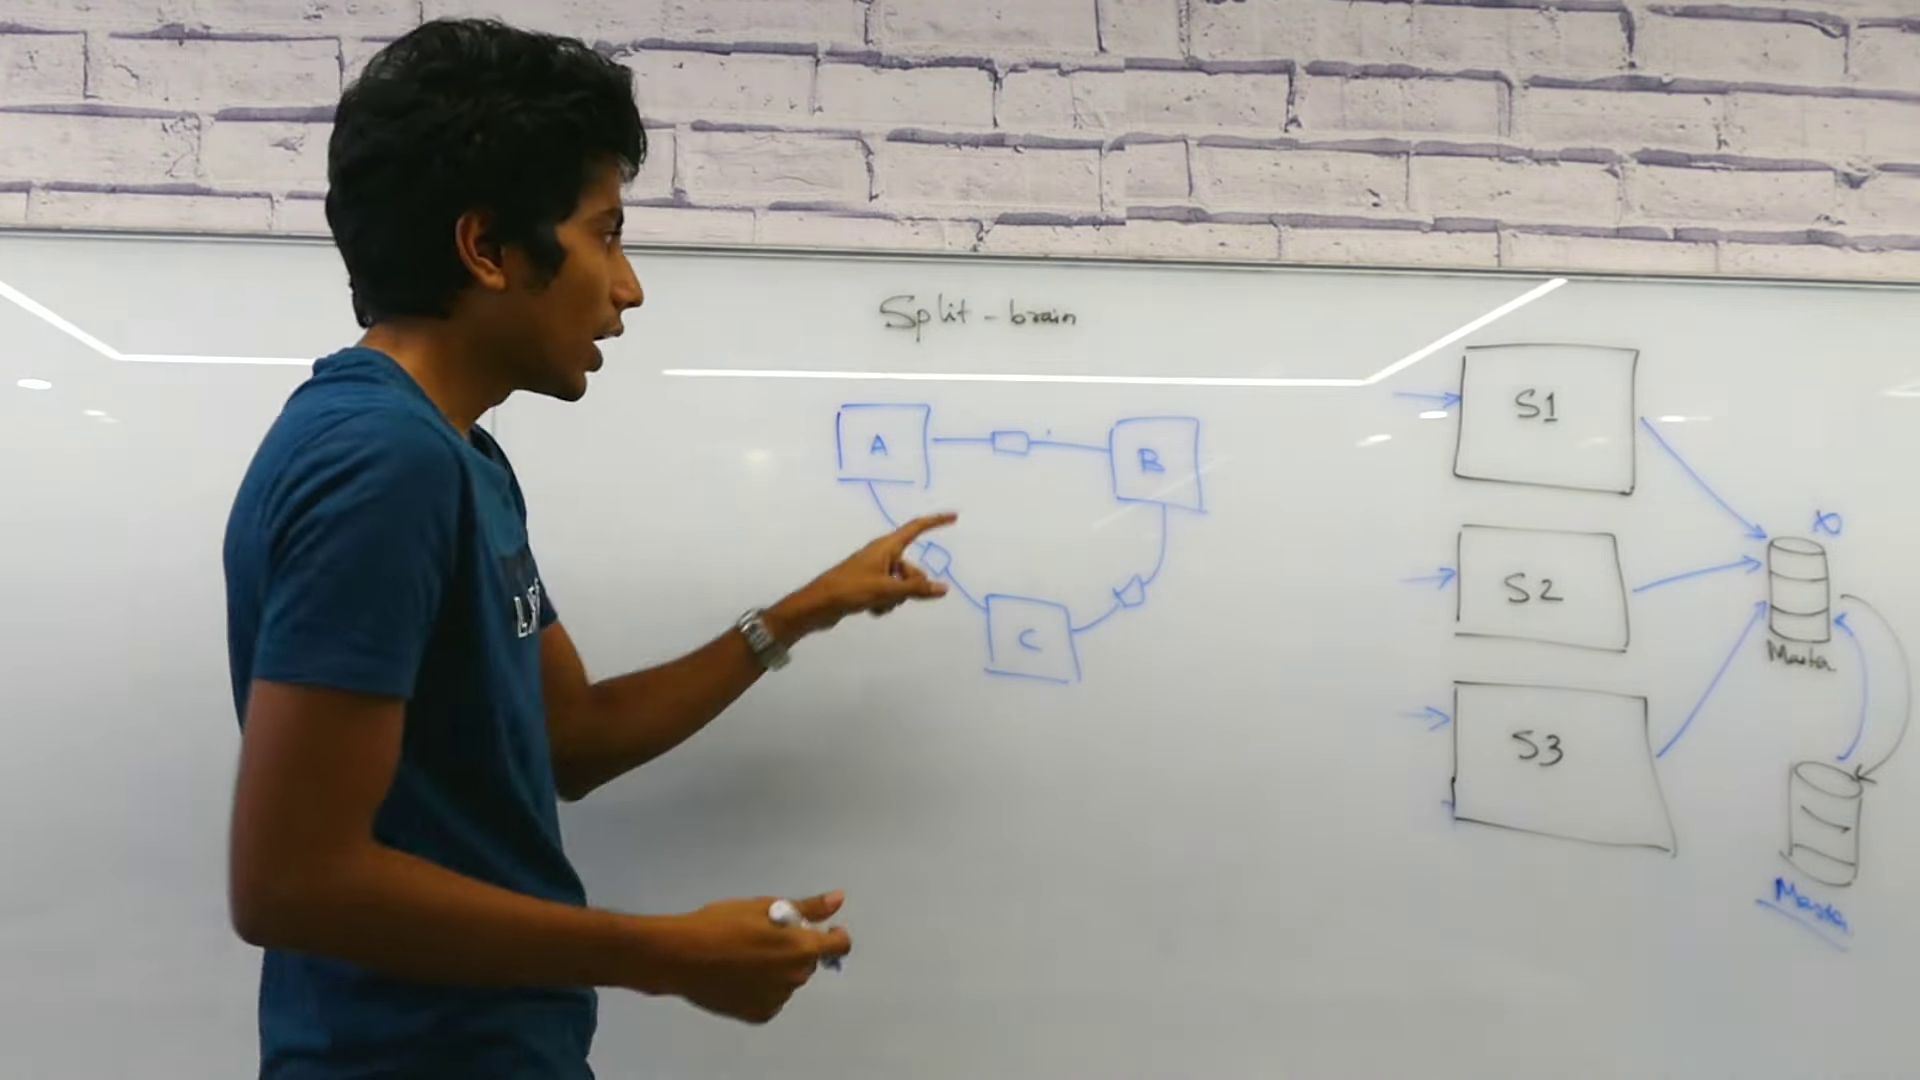 Split-brain
A
B
C
S1
S2
S3
Master
Master